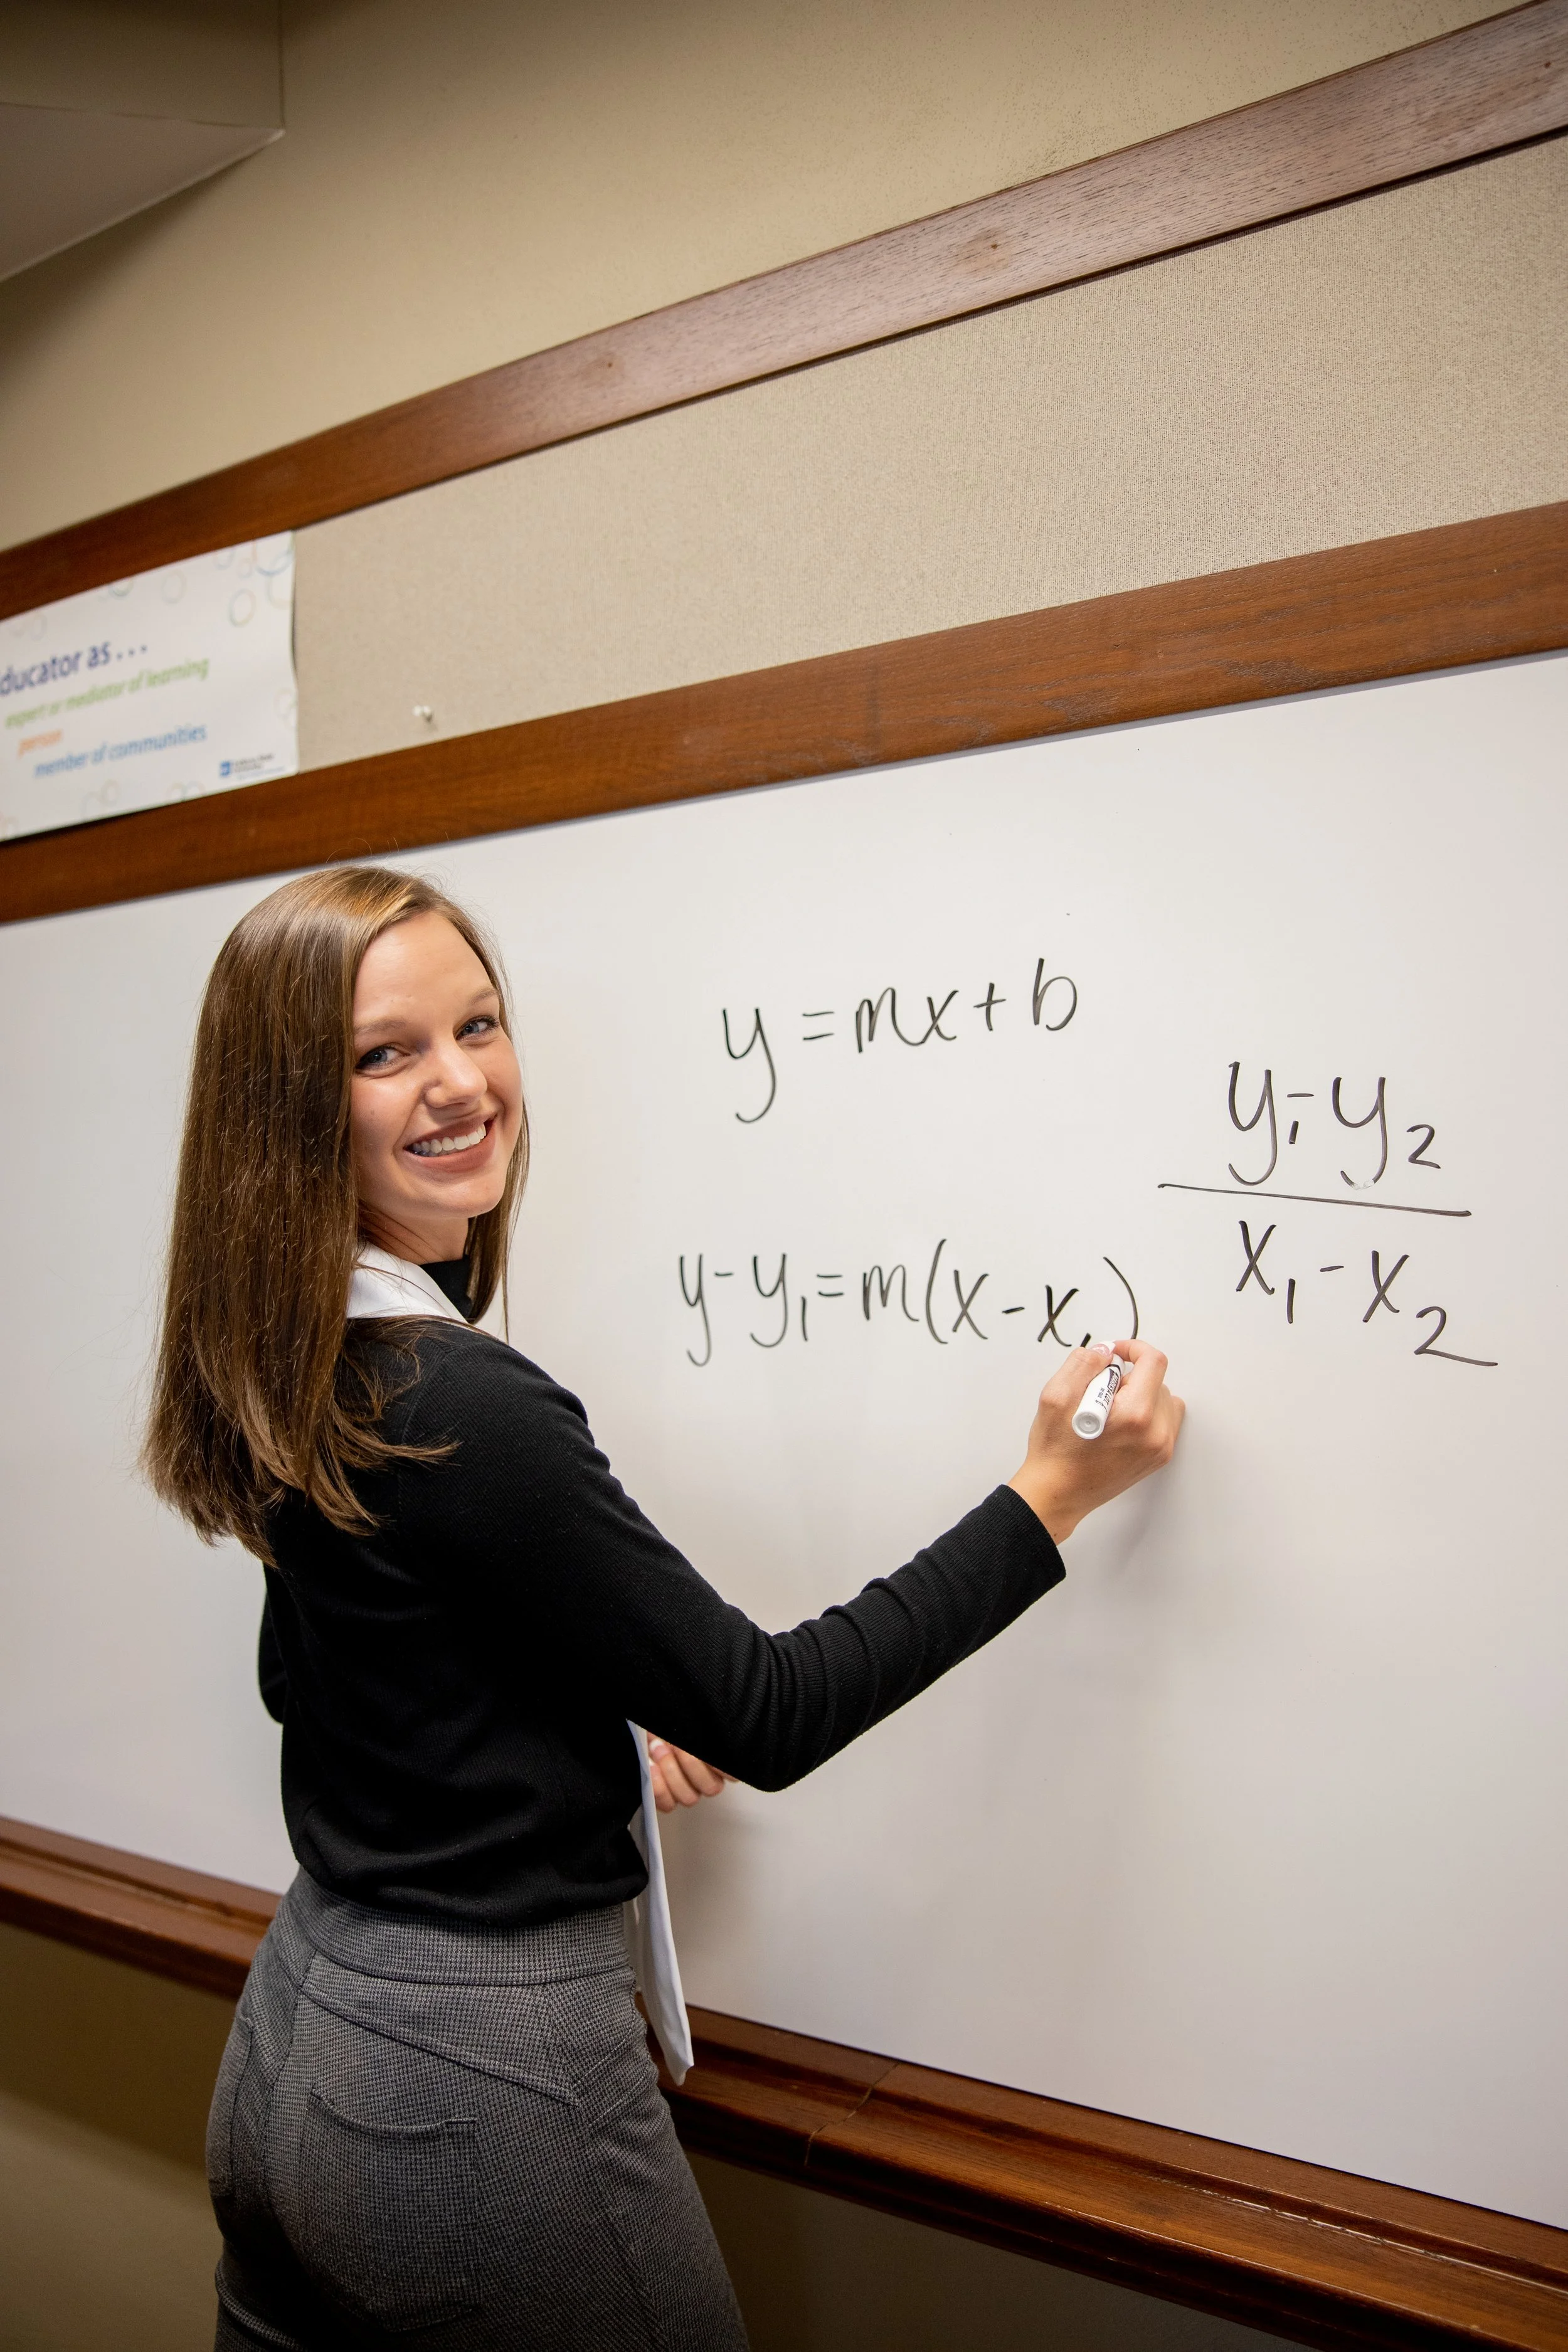 ducator as...
expert or mediator of learning
person
member of communities
y = mx + b
y - y₁ = m(x - x₁)
y₁ - y₂
x₁ - x₂